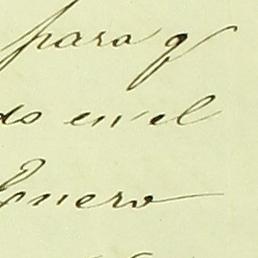 para q
do en el
Enero